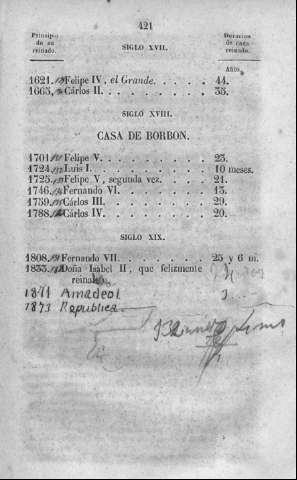 421
Principio de su reinado.
Duracion de cada reinado.
SIGLO XVII.
Años.
1621. Felipe IV, el Grande. . . . . 44.
1665. Cárlos II. . . . . . . . 35.
SIGLO XVIII.
CASA DE BORBON.
1701 Felipe V. . . . . . . . 23.
1724. Luis I. . . . . . . . 10 meses.
1725. Felipe V, segunda vez. . . . . 21.
1746. Fernando VI. . . . . . . 13.
1759. Cárlos III. . . . . . . 29.
1788. Cárlos IV. . . . . . . 20.
SIGLO XIX.
1808. Fernando VII. . . . . . . 25 y 6 m.
1833. Doña Isabel II, que felizmente
reina.
1871 Amadeo I
1873 Republica.